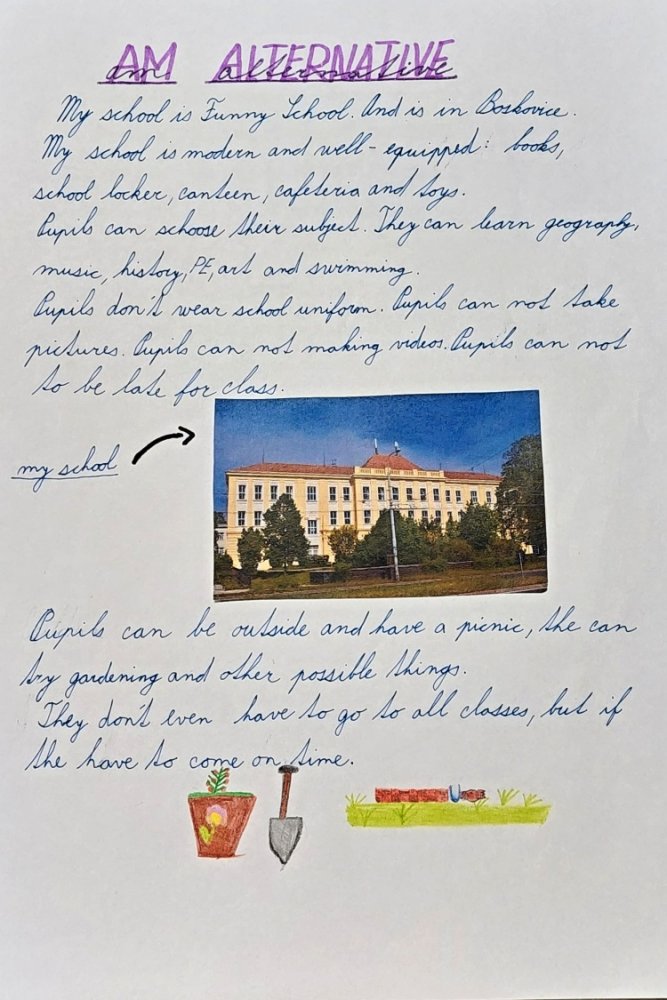 AM ALTERNATIVE
am alternative
My school is Funny School. And is in Boskovice.
My school is modern and well-equipped: books,
school locker, canteen, cafeteria and toys.
Pupils can schoose their subject. They can learn geography,
music, history, PE, art and swimming.
Pupils don't wear school uniform. Pupils can not take
pictures. Pupils can not making videos. Pupils can not
to be late for class.
my school
Pupils can be outside and have a picnic, the can
try gardening and other possible things.
They don't even have to go to all classes, but if
the have to come on time.